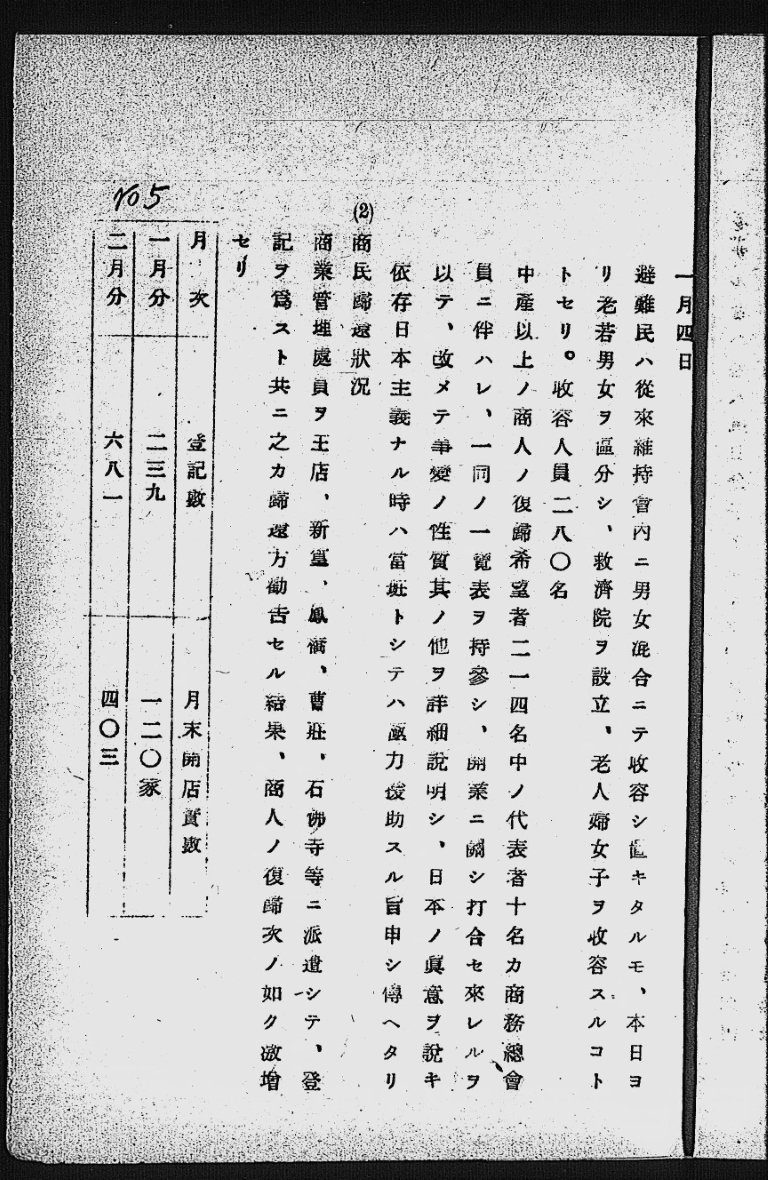 一月四日
避難民ハ從來維持會内ニ男女混合ニテ收容シ置キタルモ、本日ヨ
リ老若男女ヲ區分シ、救濟院ヲ設立、老人婦女子ヲ收容スルコト
トセリ。收容人員二八〇名
中產以上ノ商人ノ復歸希望者二一四名中ノ代表者十名カ商務總會
員ニ伴ハレ、一同ノ一覽表ヲ持參シ、開業ニ關シ打合セ來レルヲ
以テ、改メテ事變ノ性質其ノ他ヲ詳細說明シ、日本ノ眞意ヲ說キ
依存日本主義ナル時ハ當班トシテハ極力援助スル旨申シ傳ヘタリ
(2) 商民歸還狀況
商業管理處員ヲ王店、新篁、鳳橋、曹莊、石佛寺等ニ派遣シテ、登
記ヲ爲スト共ニ之カ歸還方勸告セル結果、商人ノ復歸次ノ如ク激增
セリ
月次 登記數 月末開店實數
一月分 二三九 一二〇家
二月分 六八一 四〇三
No 5